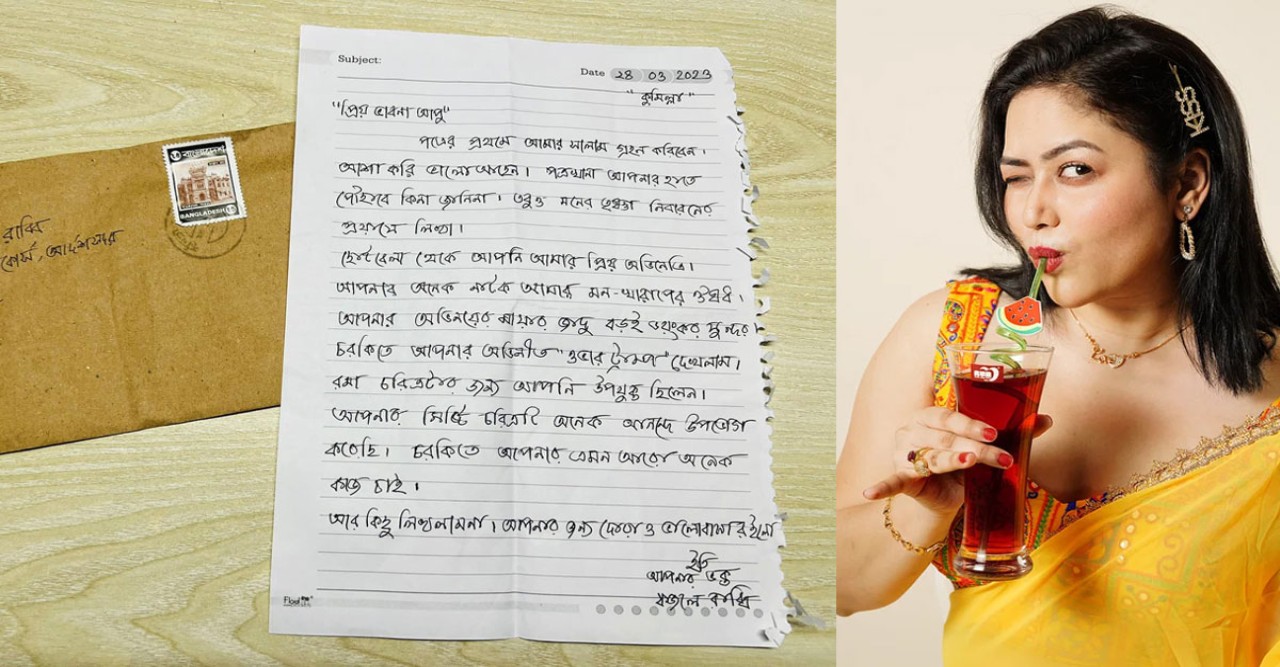 রাব্বি
কোর্স, আদর্শসদর
বাংলাদেশ
BANGLADESH
Subject:
Date 28 03 2023
"কুমিল্লা"
"প্রিয় ভাবনা আপু"
পত্রের প্রথমে আমার সালাম গ্রহন করিবেন।
আশা করি ভালো আছেন। পত্রখানা আপনার হাতে
পৌঁছাবে কিনা জানিনা। তবুও মনের তৃষ্ণা নিবারনের
প্রয়াসে লিখা।
ছোটবেলা থেকে আপনি আমার প্রিয় অভিনেত্রি।
আপনার অনেক নাটক আমার মন-খারাপের ঔষধ।
আপনার অভিনয়ের মায়ার জাদু বড়ই ভয়ংকর সুন্দর।
চরকিতে আপনার অভিনীত "ওভার ট্রাম্প" দেখলাম।
রমা চরিত্রটার জন্য আপনি উপযুক্ত ছিলেন।
আপনার মিষ্টি চরিত্রটি অনেক আনন্দে উপভোগ
করেছি। চরকিতে আপনার এমন আরো অনেক
কাজ চাই।
আর কিছু লিখলামনা। আপনার জন্য দোয়া ও ভালোবাসা রইলো
ইতি
আপনার ভক্ত
রাব্বি
KISS